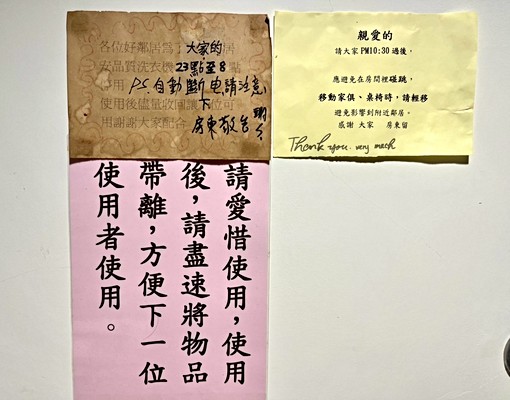 各位好鄰居為了大家的居
安品質洗衣機23點至8點
使用 P.S.自動斷電請注意
使用後儘量收回讓下位可
用謝謝大家配合 房東敬告
親愛的
請大家PM10:30過後，
應避免在房間裡碰跳，
移動家俱、桌椅時，請輕移
避免影響到附近鄰居。
感謝 大家 房東留
Thank you. very much
請愛惜使用，使用
後，請盡速將物品
帶離，方便下一位
使用者使用。